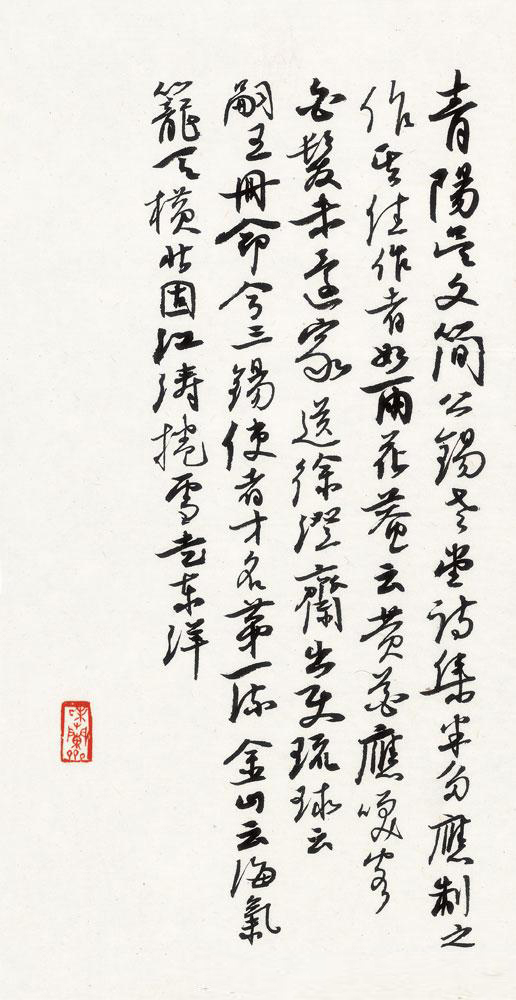 青陽吴文簡公錫老堂詩集半多應制之
作其佳作者如雨花菴云黄花應咲客
白髮未還家送徐澄齋出使琉球云
嗣王冊命今三錫使者才名第一流金山云海氣
籠天橫北固江濤捲雪走東洋